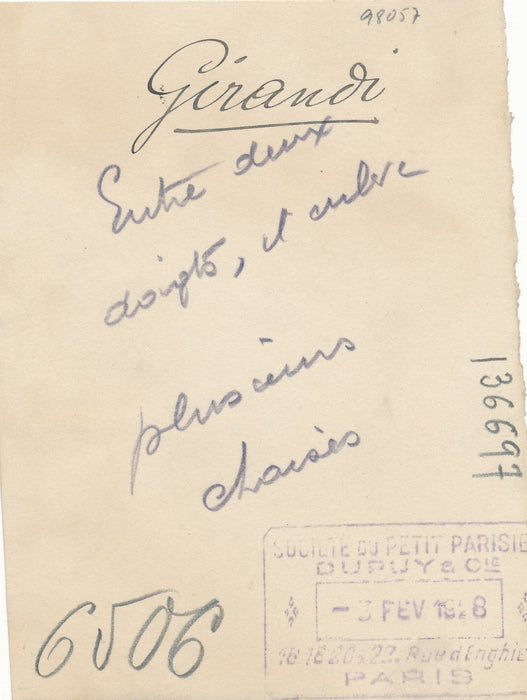 98057
Girandi
Entre deux
doigts, il enlève
plusieurs
chaises
136697
SOCIÉTÉ DU PETIT PARISIE
DUPUY & CIE
- 3 FEV 1928
16 18 20 & 22, Rue d'Enghie
PARIS
6506